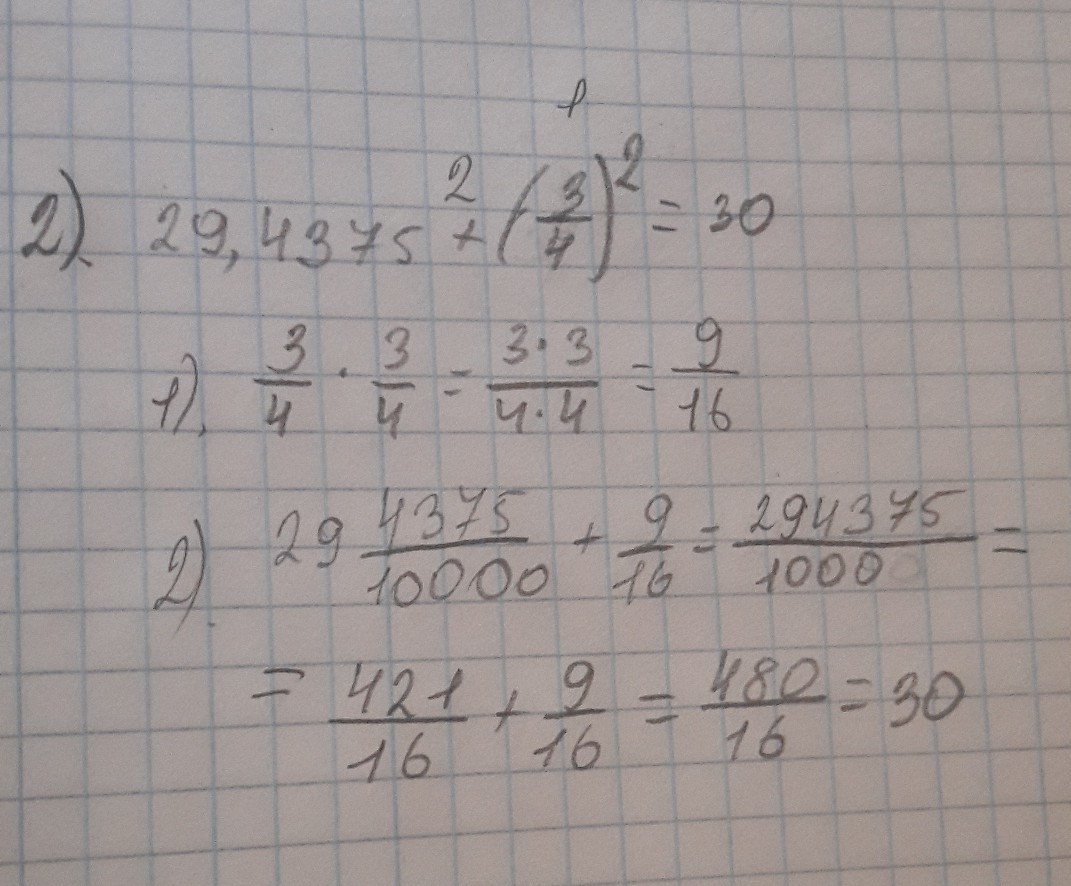 1
2). 29,4375 +² (3/4)² = 30
1). 3/4 · 3/4 = 3·3/4·4 = 9/16
2). 29 4375/10000 + 9/16 = 294375/10000 =
= 421/16 + 9/16 = 480/16 = 30